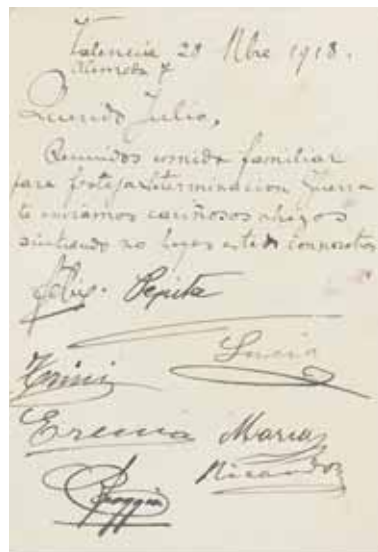 Valencia 28 Nbre 1918.
Alameda 7
Querido Julio,
Reunidos comida familiar
para festejar terminacion Guerra
te enviamos cariñosos abrazos
sintiendo no hayas estado con nosotros
Felix. Pepita
Lucia
Trini
Eremia Maria
Ricardo